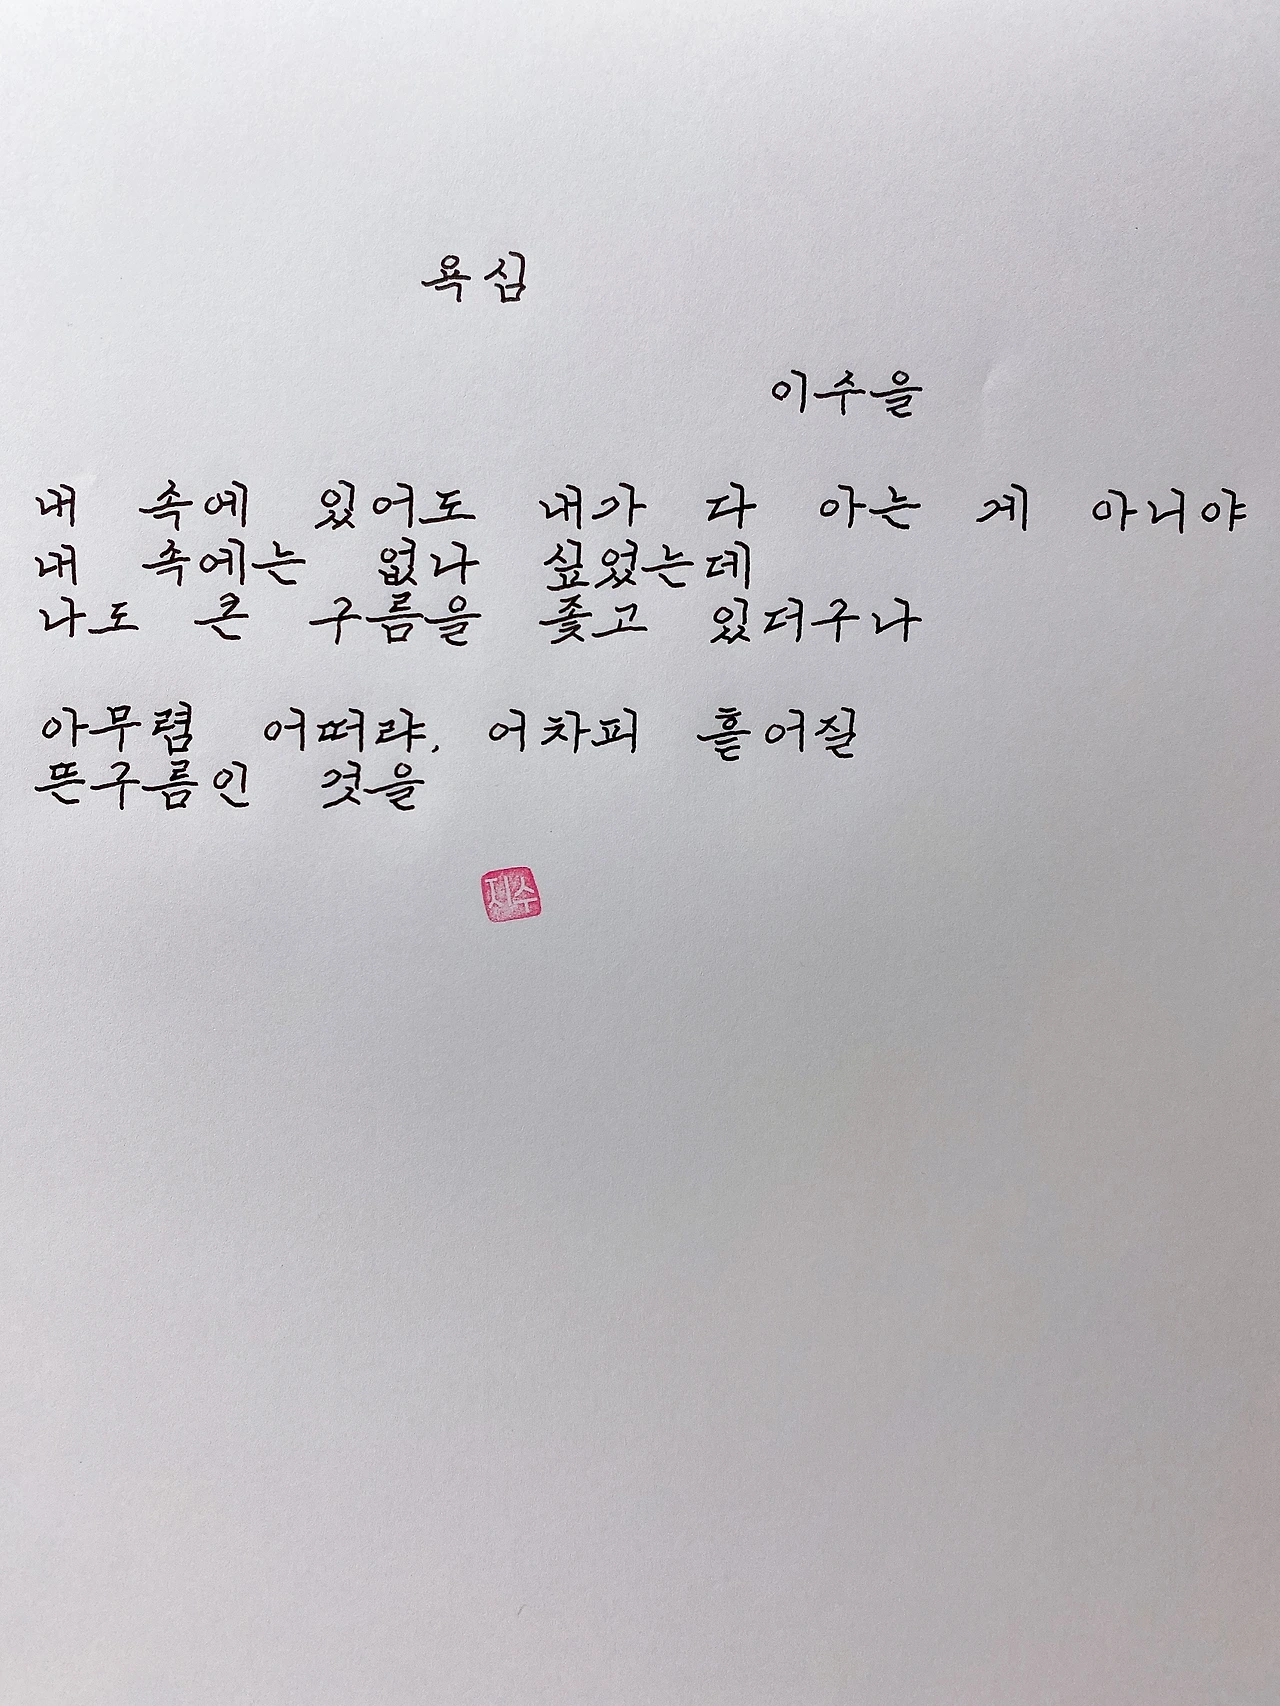 욕심
이수을
내 속에 있어도 내가 다 아는 게 아니야
내 속에는 없나 싶었는데
나도 큰 구름을 좇고 있더구나
아무렴 어떠랴, 어차피 흩어질
뜬구름인 것을
지수